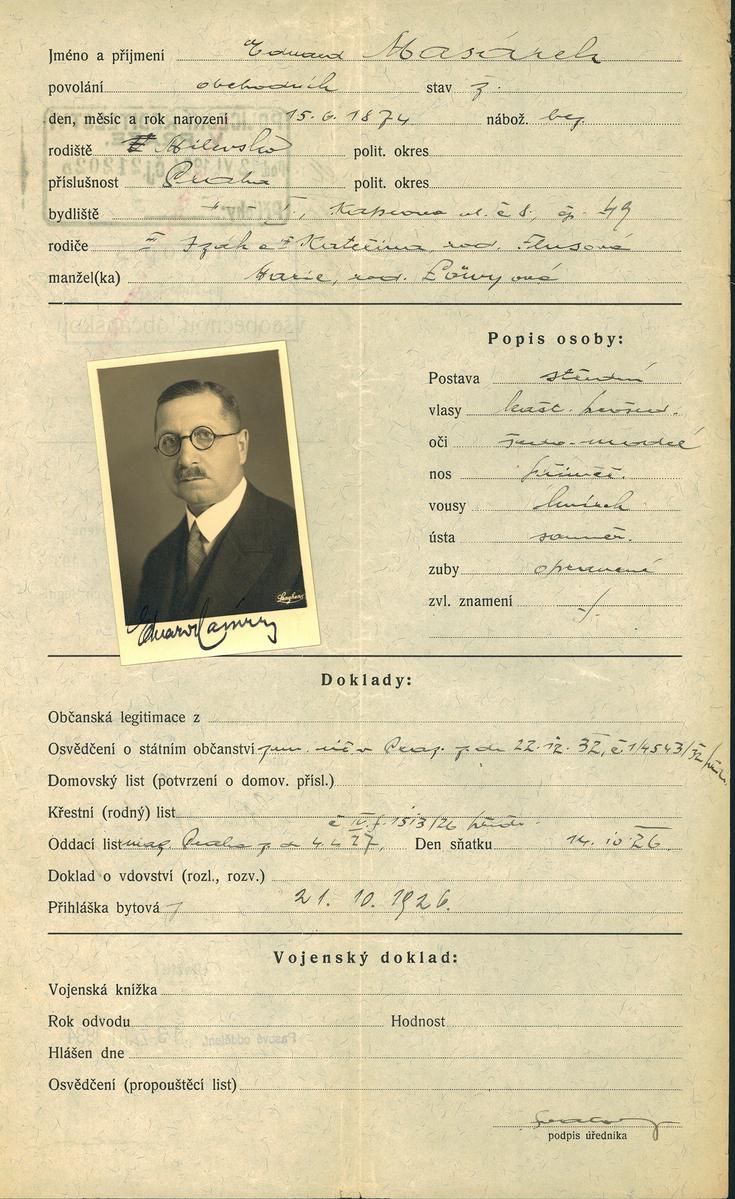 Jméno a příjmení Eduard Masárek
povolání obchodník stav ž.
den, měsíc a rok narození 15. 6. 1874 nábož. bez
rodiště Milevsko polit. okres
příslušnost Praha polit. okres
bydliště I., Kaprova ul. č 8, čp. 49
rodiče Izák a Kateřina, rod. Flusová
manžel(ka) Marie, rod. Löwyová
Popis osoby:
Postava střední
vlasy kašt. prošed.
oči šedo-modré
nos přiměř.
vousy knírek
ústa souměr.
zuby opravené
zvl. znamení
Langhans
Doklady:
Občanská legitimace z
Osvědčení o státním občanství zem. úř. v Praze z. dne 22. 12. 32, č 14543/32
Domovský list (potvrzení o domov. přísl.)
Křestní (rodný) list
č IV. f. 1513/26
Oddací list mag. Praha z. dne 4. 4. 27, Den sňatku 14. 10 26.
Doklad o vdovství (rozl., rozv.)
Přihláška bytová 21. 10. 1926.
Vojenský doklad:
Vojenská knížka
Rok odvodu Hodnost
Hlášen dne
Osvědčení (propouštěcí list)
podpis úředníka